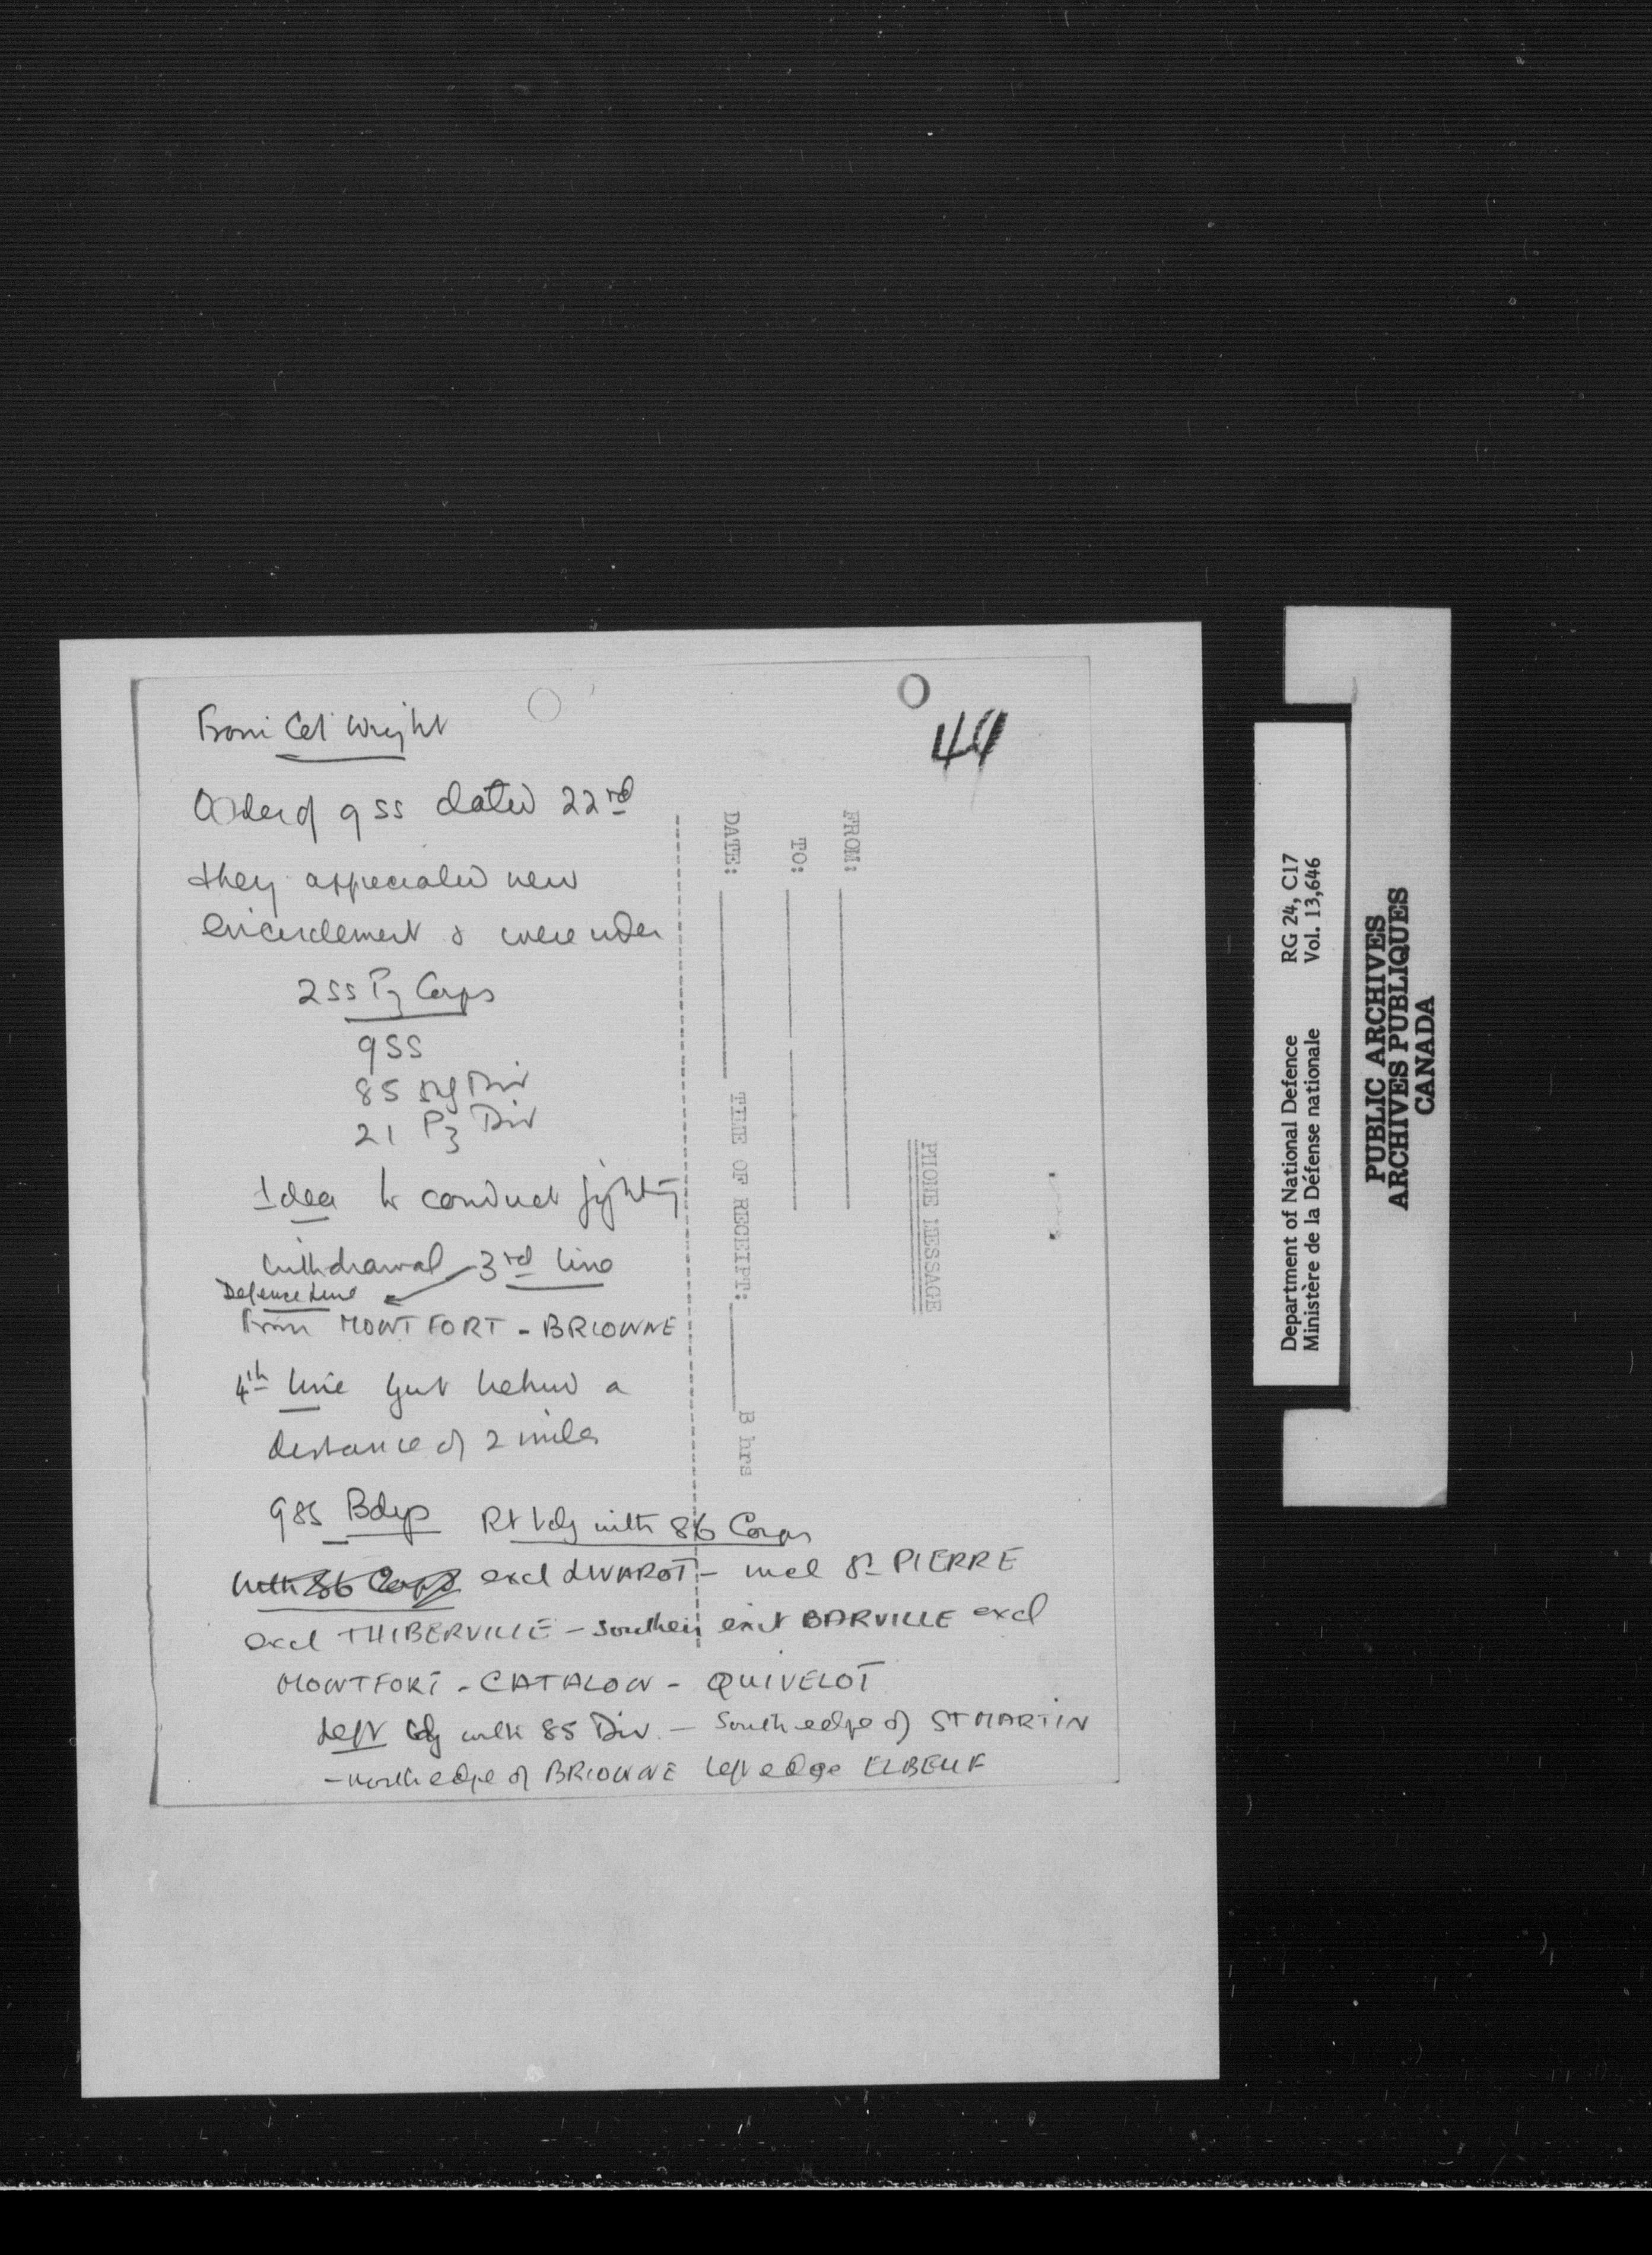 From Col Wright
44
Order of 9 SS dated 22nd
they appreciated new
encirclement & were under
2 SS Pz Corps
9 SS
85 Inf Div
21 Pz Div
Idea to conduct fighting
withdrawal 3rd line
Defence Line
From MONTFORT - BRIONNE
4th line but behind a
distance of 2 miles
9 SS Bdys Rt bdy with 86 Corps
with 86 Corps excl LIVAROT - incl St PIERRE
excl THIBERVILLE - southern exit BARVILLE excl
MONTFORT - CATALON - QUIVELOT
Left bdy with 85 Div. - South edge of ST MARTIN
- north edge of BRIONNE left edge ELBEUF
PHONE MESSAGE
FROM:
TO:
DATE: TIME OF RECEIPT: B hrs
Department of National Defence RG 24, C17
Ministère de la Défense nationale Vol. 13,646
PUBLIC ARCHIVES
ARCHIVES PUBLIQUES
CANADA